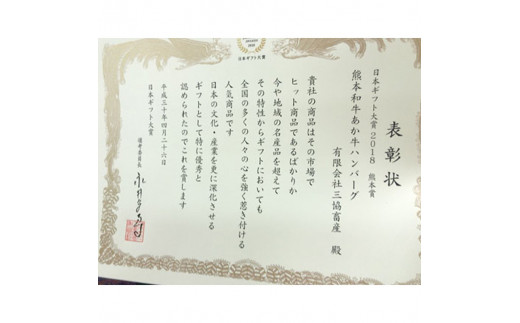 日本ギフト大賞
表彰状
日本ギフト大賞2018 熊本賞
熊本和牛あか牛ハンバーグ
有限会社三協畜産 殿
貴社の商品はその市場で
ヒット商品であるばかりか
今や地域の名産品を超えて
その特性からギフトにおいても
全国の多くの人々の心を強く惹き付ける
人気商品です
日本の文化・産業を更に深化させる
ギフトとして特に優秀と
認められたのでこれを賞します
平成三十年四月二十六日
日本ギフト大賞
選考委員長